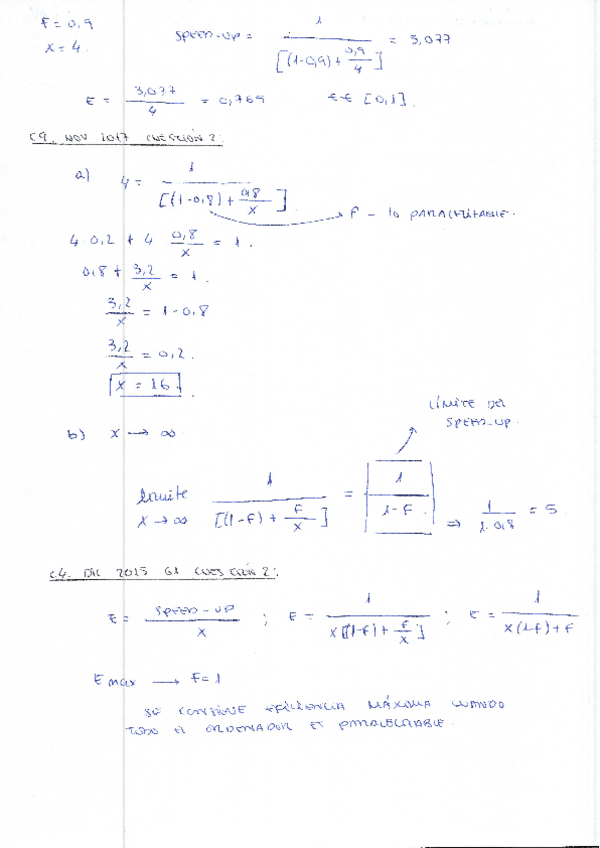 F = 0,9
X = 4.
SPEED-UP = 1 / [(1-0,9) + 0,9/4] = 3,077
E = 3,077 / 4 = 0,769 E ∈ [0,1].
C9. NOV 2017 CUESTIÓN 2:
a) 4 = 1 / [(1-0,8) + 0,8/X]
F - lo PARALELIZABLE.
4·0,2 + 4 0,8/X = 1.
0,8 + 3,2/X = 1.
3,2/X = 1-0,8
3,2/X = 0,2.
X = 16.
LÍMITE DEL
SPEED-UP.
b) X → ∞
límite X → ∞ 1 / [(1-F) + F/X] = 1 / 1-F. ⇒ 1 / 1-0,8 = 5
C4. DIC 2015 G1 CUESTIÓN 2:
E = SPEED-UP / X ; E = 1 / X[(1-F) + F/X] ; E = 1 / X(1-F)+F
E max → F=1
SE CONSIGUE EFICIENCIA MÁXIMA CUANDO
TODO EL ORDENADOR ES PARALELIZABLE.